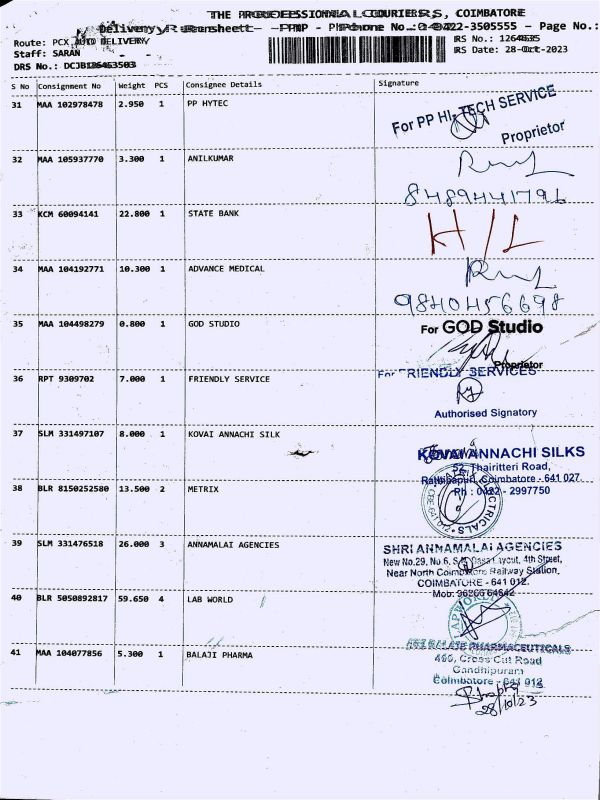 THE PROFESSIONAL COURIERS, COIMBATORE
Delivery Runsheet - PMP - Phone No.:0422-3505555 - Page No.:
Route: PCX AUTO DELIVERY
Staff: SARAN
DRS No.: DCJB126463503
DRS Date: 28-Oct-2023
S No Consignment No Weight PCS Consignee Details Signature
31 MAA 102978478 2.950 1 PP HYTEC
For PP HI-TECH SERVICE
Proprietor
32 MAA 105937770 3.300 1 ANILKUMAR
8489441796
33 KCM 60094141 22.800 1 STATE BANK
H/L
34 MAA 104192771 10.300 1 ADVANCE MEDICAL
9840456698
35 MAA 104498279 0.800 1 GOD STUDIO
For GOD Studio
Proprietor
36 RPT 9309702 7.000 1 FRIENDLY SERVICE
For FRIENDLY SERVICES
Authorised Signatory
37 SLM 331497107 8.000 1 KOVAI ANNACHI SILK
KOVAI ANNACHI SILKS
52, Thairitteri Road,
Coimbatore - 641 027.
Ph : 0422 - 2997750
38 BLR 8150252580 13.500 2 METRIX
39 SLM 331476518 26.000 3 ANNAMALAI AGENCIES
SHRI ANNAMALAI AGENCIES
New No.29, No 6, Layout, 4th Street,
Near North Coimbatore Railway Station,
COIMBATORE - 641 012.
Mob: 96266 64642
40 BLR 5050892817 59.650 4 LAB WORLD
41 MAA 104077856 5.300 1 BALAJI PHARMA
PHARMACEUTICALS
Cross Cut Road
Gandhipuram
Coimbatore - 641 012
28/10/23